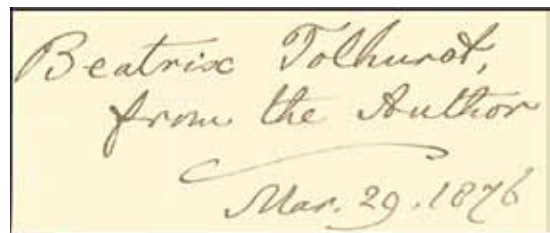 Beatrix Tolhurst,
from the Author
Mar. 29. 1876